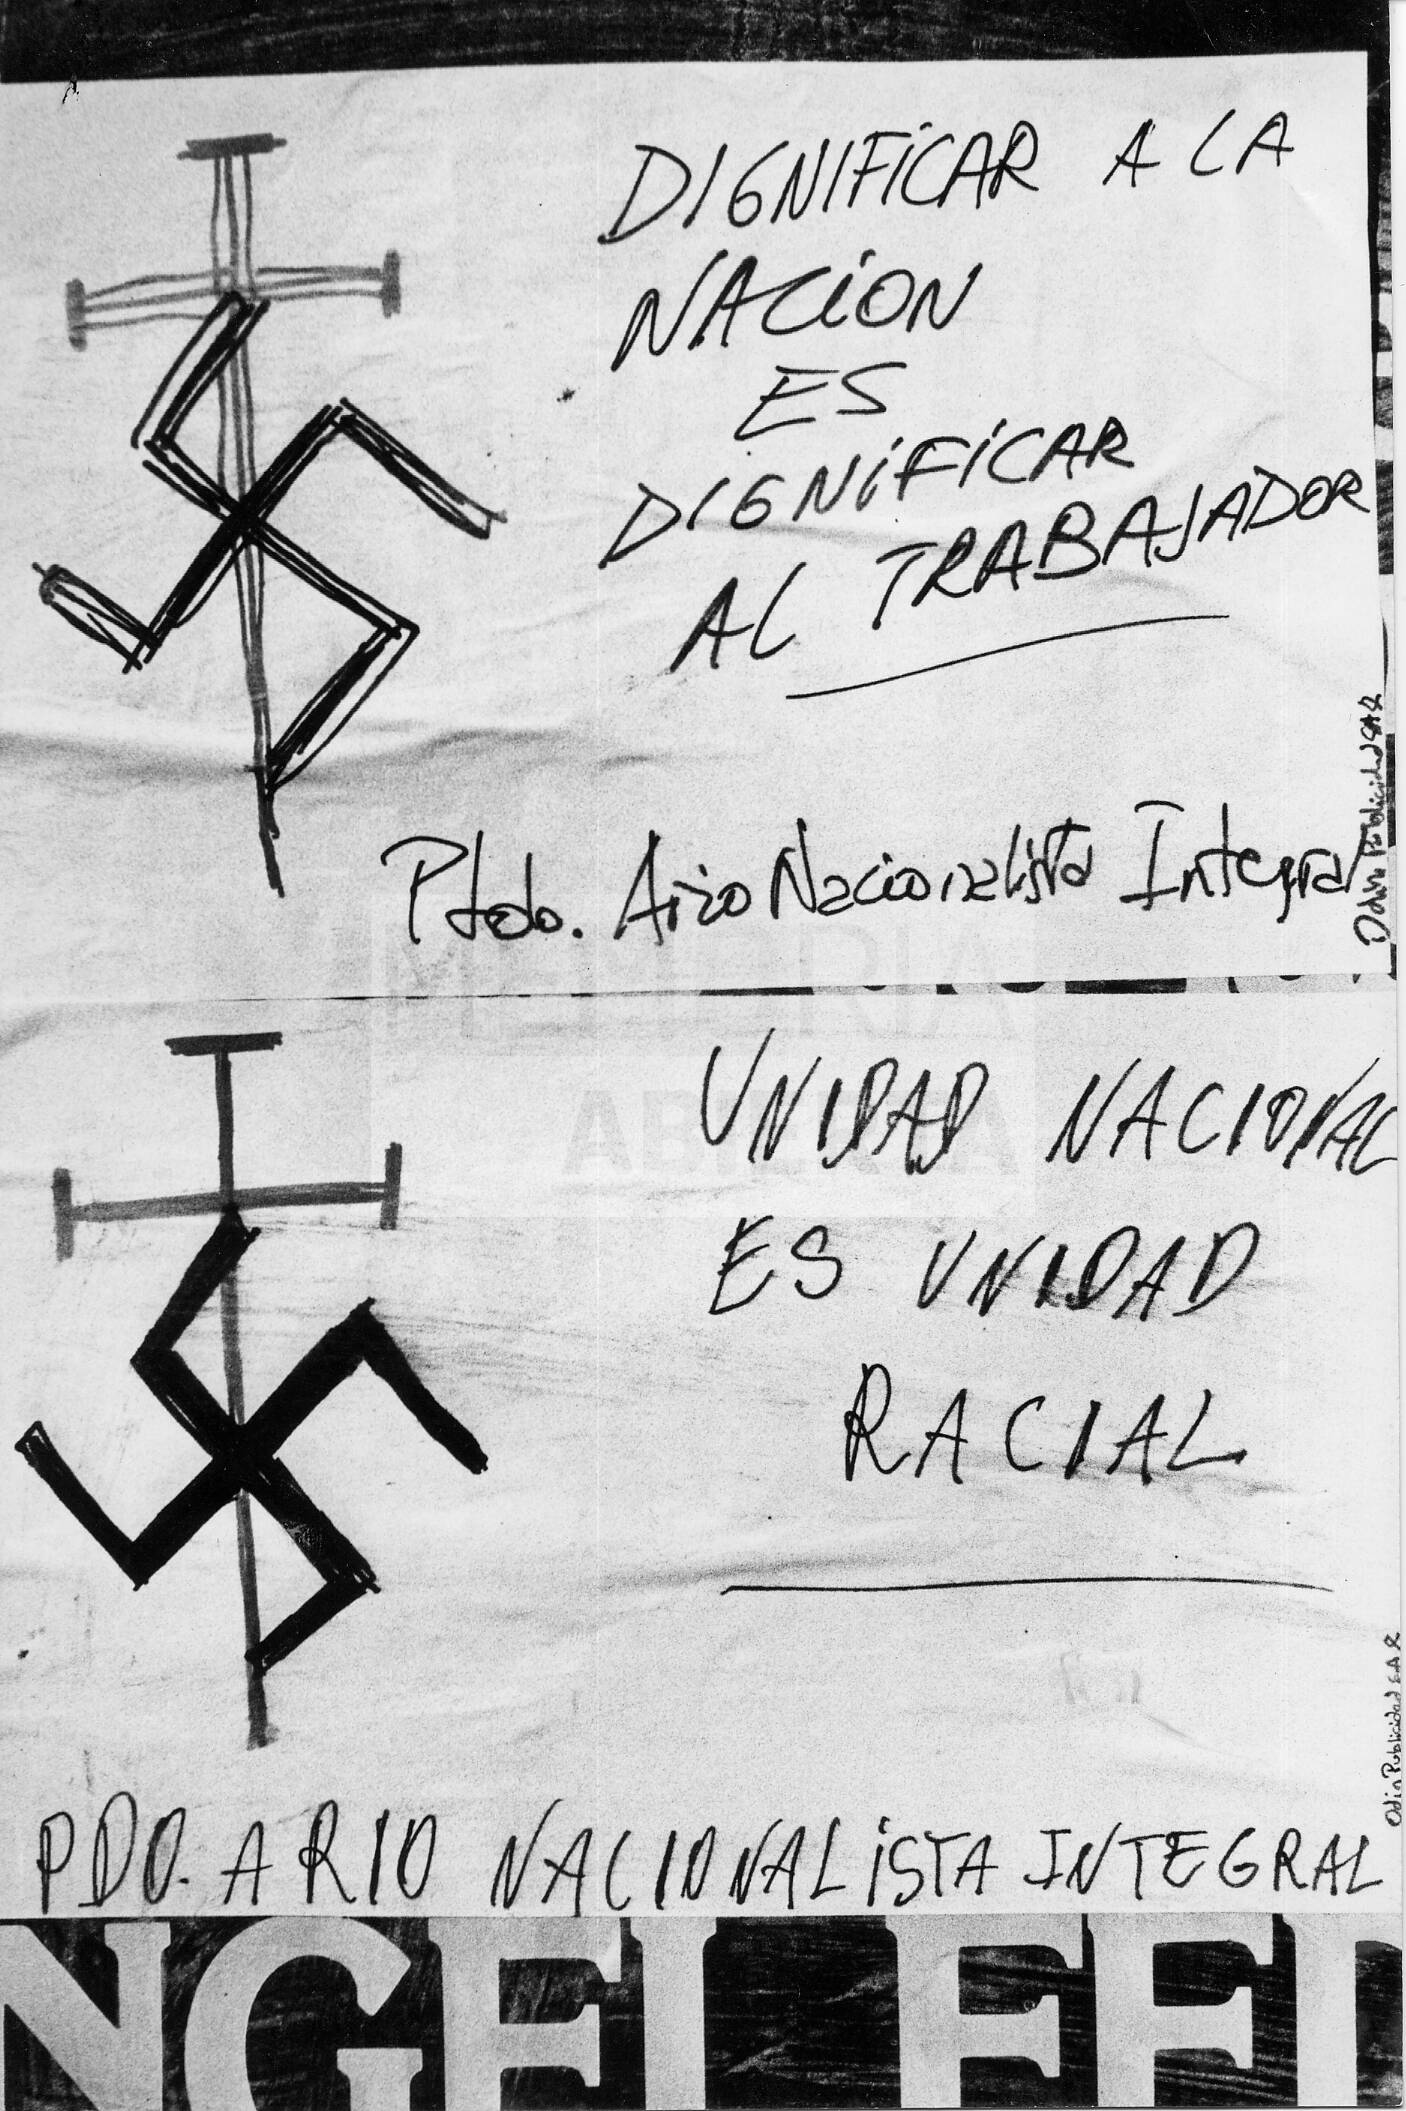 DIGNIFICAR A LA
NACION
ES
DIGNIFICAR
AL TRABAJADOR
Ptdo. Ario Nacionalista Integral
Odin Publicidad SAR
MEMORIA
ABIERTA
UNIDAD NACIONAL
ES UNIDAD
RACIAL
Odin Publicidad SAR
PDO. ARIO NACIONALISTA INTEGRAL